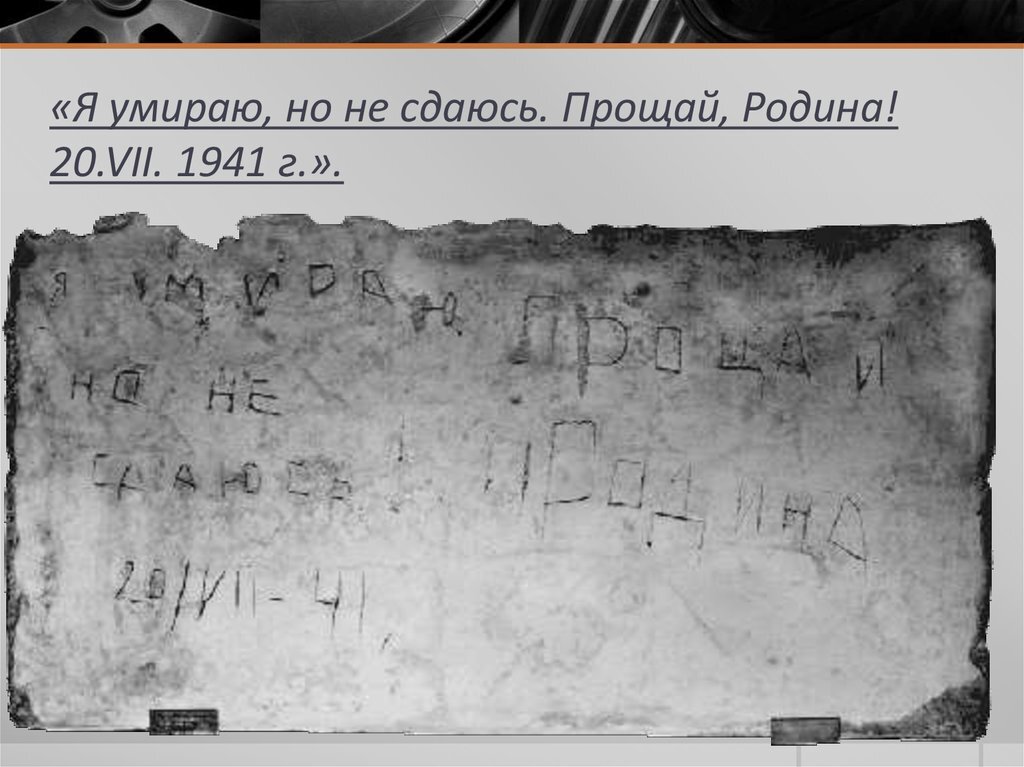 «Я умираю, но не сдаюсь. Прощай, Родина!
20.VII. 1941 г.».
Я УМИРАЮ
НО НЕ
СДАЮСЬ!
20/VII-41
ПРОЩАЙ
РОДИНА